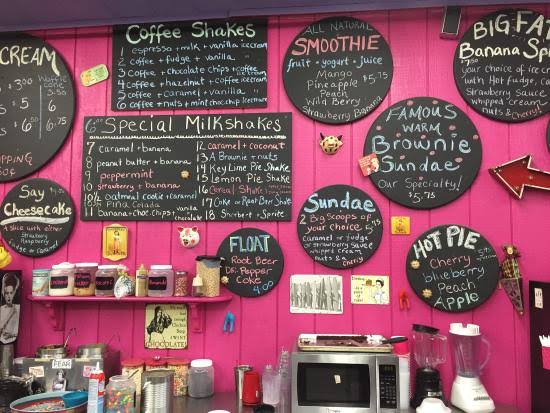 CREAM
Waffle
cone
Coffee Shakes
1 espresso + milk + vanilla icecream
2 coffee + fudge + vanilla
3 coffee + chocolate chips + coffee icecream
4 coffee + hazelnut + coffee icecream
5 coffee + caramel + vanilla
6 coffee + nuts + mint chocchip Icecream
ALL NATURAL
SMOOTHIE
fruit • yogurt • juice
Mango
$5.75
Pineapple
Peach
Wild Berry
Strawberry Banana
BIG FA
Banana Spl
$7.50
your choice of ice
with Hot fudge, Ca
Strawberry Sauce
whipped cream
nuts & cherry!
6.00 Special Milkshakes
7 caramel + banana
8 peanut butter + banana
9 peppermint
10 strawberry + banana
10½ oatmeal cookie + caramel
10¾ Pina, Colada
11 banana + choc.chips + vanilla chocolate
12 caramel + coconut
13 A Brownie + nuts
14 Key Lime Pie Shake
15 Lemon Pie Shake
16 Cereal Shake
17 Coke or Root Beer Shake
18 Sherbert + Sprite
FAMOUS
WARM
Brownie
Sundae
Our Specialty!
$5.75
Say
Cheesecake
A slice with either
Strawberry
Raspberry
Fudge or Caramel
FLOAT
Root Beer
Dr. Pepper
Coke
4.00
Sundae
2 Big Scoops of
your choice
$5
caramel or fudge
or strawberry sauce
whipped cream
nuts & a
cherry
HOT PIE
Cherry
blueberry
Peach
Apple
I WANT
CHOCOLATE!
FEAR